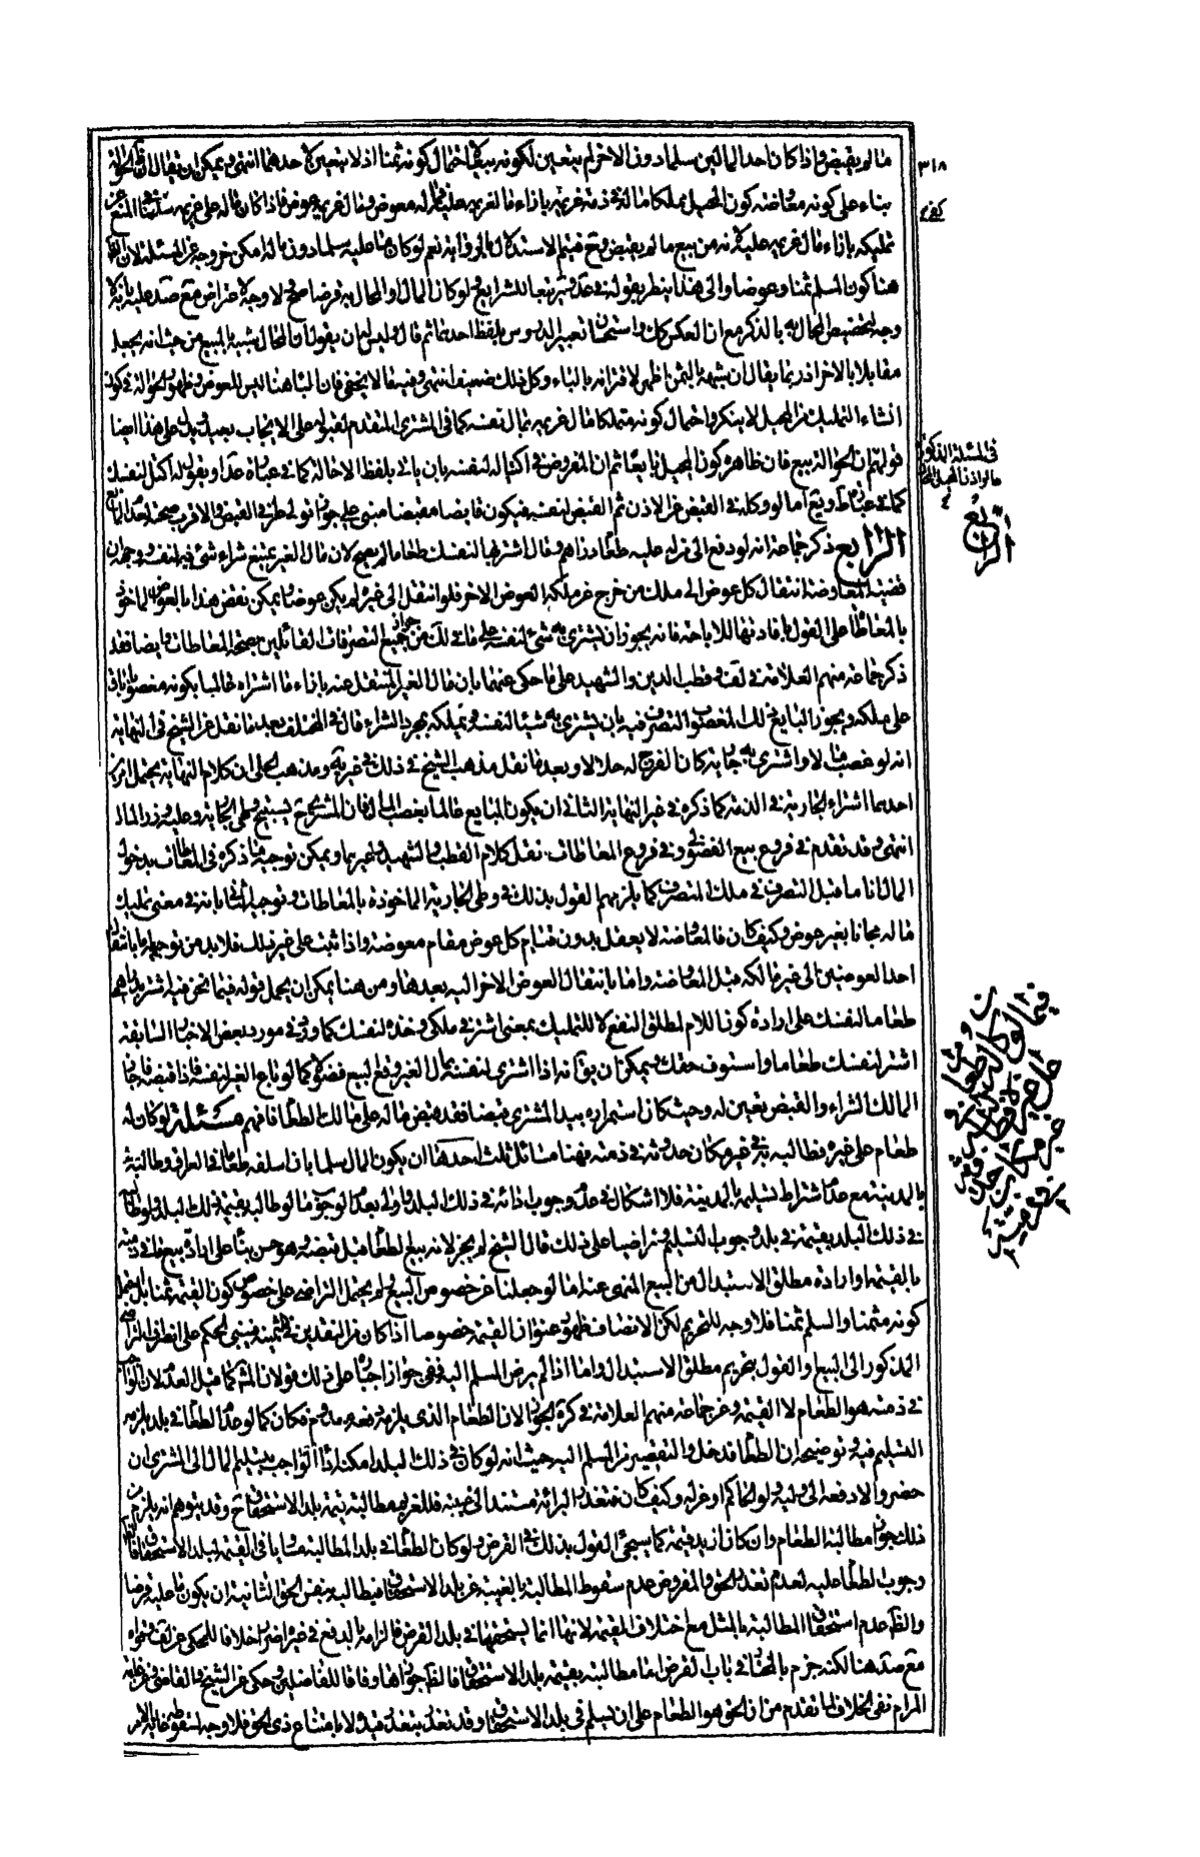 ما لم يقبض واذا كان احد المالين سلما دون الاخر لم يتعين لكونه مبيعا لاحتمال كونه ثمنا اذ لا يتعين لاحدهما انتهى ويمكن ان يقال ان الحوالة
٣١٨
بناء على كونه معاوضة كون المحيل مملكا ماله في ذمة غريمه بازاء مال غريمه عليه فماله معوض ومال غريمه عوض فاذا كان ماله على غريمه سلما
تمليكه بازاء مال غريمه عليه لانه من بيع ما لم يقبض وح فيتم الاستدلال نعم لو كان ما عليه سلما دون ماله امكن خروجه عن المسئلة لان
هنا كون المسلم ثمنا وعوضا والى هذا ينظر بقوله في عد وتر تبعا للشرايع ولو كان المال والمحال به قرضا صح ولا وجه لاعتراض مع صد عليه بانه لا
وجه لتخصيص المحال به بالذكر مع ان العكس كك واستحسان تعبير الدروس بلفظ احدهما ثم قال وليس له ان يقول ان المحال به شبيه بالمبيع من حيث انه يجعل
مقابلا بالاخر اذ ربما يقال ان شبهه بالثمن اظهر لاقترانه بالباء وكل ذلك ضعيف انتهى وفيه ما لا يخفى فان الباء هنا ليس للعوض وظهور الحوالة في كون
انشاء التمليك من المحيل لا ينكر واحتمال كونه متملكا مال غريمه بمال نفسه كما في المشترى المتقدم لقبوله على الايجاب بعيد ويدل على هذا ايضا
قولهم ان الحوالة بيع فان ظاهره كون المحيل بايعا ثم ان المفروض في اكتياله لنفسه بان ياتى بلفظ الاحالة كما في عبارة عد او بقوله اكتل لنفسك
في المسئلة المذكورة
الرابع ذكر جماعة انه لو دفع الى من له عليه طعام دراهم وقال اشتر بها لنفسك طعاما لم يصح لان مال الغير يمتنع شراء شئ به لنفسه ووجهه ان
الرابع
قضية المعاوضة انتقال كل عوض الى ملك من خرج عن ملكه العوض الاخر فلو انتقل الى غيره لم يكن عوضا ويمكن نقض هذا
بالمعاطاة على القول بافادتها للاباحة فانه يجوز ان يشترى به شئ لنفسه على ما في لك من جواز جميع التصرفات القائلين بصحة المعاطاة وايضا فقد
ذكر جماعة منهم العلامة في لف وقطب الدين والشهيد على ما حكى عنهما بان مال الغير المنتقل عنه بازاء ما اشتراه عالما بكونه مغصوبا باق
على ملكه ويجوز لبايع ذلك المغصوب التصرف فيه بان يشترى به شيئا لنفسه ويملكه بمجرد الشراء قال في المختلف بعد ما نقل عن الشيخ في النهاية
انه لو غصب مالا واشترى به جارية كان الفرج له حلالا وبعد ما نقل مذهب الشيخ في ذلك في غيره ومذهب الحلى ان كلام النهاية يحتمل امرين
احدهما اشتراء الجارية في الذمة كما ذكره في غير النهاية الثانى ان يكون البايع عالما بغصب المال فان المشترى ح يستبيح وطى الجارية وعليه وزر المال
انتهى وقد تقدم في فروع بيع الفضولى وفي فروع المعاطاة نقل كلام القطب والشهيد وغيرهما ويمكن توجيه ما ذكر في المعاطاة بدخول
المال آنا ما قبل التصرف في ملك المتصرف كما يلزمهم القول بذلك في وطى الجارية الماخوذة بالمعاطاة وتوجيه الثانى بانه في معنى تمليك
ماله مجانا بغير عوض وكيف كان فالمعاوضة لا يعقل بدون قيام كل عوض مقام معوضه واذا ثبت على غير ذلك فلا بد من توجيهه اما بانتقال
احد العوضين الى غير مالكه قبل المعاوضة واما بانتقال العوض الاخر اليه بعدها ومن هنا يمكن ان يحمل قوله فيما نحن فيه اشتر بدراهمى
طعاما لنفسك على ارادة كون اللام لمطلق النفع لا للتمليك بمعنى اشتر في ملكى وخذه لنفسك كما ورد في مورد بعض الاخبار السابقة
اشتر لنفسك طعاما واستوف حقك ويمكن ان يق انه اذا اشترى لنفسه بمال الغير وقع البيع فضولا كما لو باع الغير لنفسه فاذا قبضه فاجاز
المالك الشراء والقبض تعين له وحيث كان استمراره بيد المشترى قبضا فقد قبض ماله على مالك الطعام فافهم مسئلة لو كان له
طعام على غيره فطالبه به في غير مكان حدوثه في ذمته فهنا مسائل ثلث احدها ان يكون المال سلما بان اسلفه طعاما في العراق وطالبه
بالمدينة مع عدم اشتراط تسليمه بالمدينة فلا اشكال في عدم وجوب ادائه في ذلك البلد واولى بعدم الوجوب ما لو طالبه بقيمة ذلك البلد ولو طالبه
في ذلك البلد بقيمته في بلد وجوب التسليم وتراضيا على ذلك قال الشيخ لم يجز لانه بيع الطعام قبل قبضه وهو حسن بناء على ارادة بيع ما في ذمته
بالقيمة او ارادة مطلق الاستبدال من البيع المنهى عنه اما لو جعلنا عن خصوص البيع ولم يحتمل التراضى على خصوص كون القيمة ثمنا بل احتمل
كونه مثمنا والسلم ثمنا فلا وجه للتحريم لكن الانصاف ظهور عنوان القيمة خصوصا اذا كان من النقدين في الثمنية فيبنى الحكم على انصراف التراضى
المذكور الى البيع او القول بتحريم مطلق الاستبدال واما اذا لم يرض المسلم اليه ففى جواز اجباره على ذلك قولان المشهور كما قيل العدم لان الواجب
في ذمته هو الطعام لا القيمة وعن جماعة منهم العلامة في كره الجواز لان الطعام الذى يلزمه دفعه معدوم فكان كما لو عدم الطعام في بلد يلزمه
التسليم فيه وتوضيحه ان الطعام قد حل والتقصير من المسلم اليه حيث انه لو كان في ذلك البلد امكنه اداء الواجب بتسليم المال الى المشترى ان
حضر والا دفعه الى وليه ولو الحاكم او عزله وكيف كان فتعذر البراءة مستند الى غيبته فللغريم مطالبة قيمة بلد الاستحقاق ح وقد يتوهم انه يلزم من
ذلك جواز مطالبة الطعام وان كان ازيد قيمة كما سيجئ القول بذلك في القرض ولو كان الطعام في بلد المطالبة مساويا في القيمة لبلد الاستحقاق
وجوب الطعام عليه لعدم تعذر الحق والمفروض عدم سقوط المطالبة بالغيبة عن بلد الاستحقاق فيطالبه بنفس الحق الثانية ان يكون ما عليه قرضا
والظ عدم استحقاق المطالبة بالمثل مع اختلاف القيمة لانها انما يستحقها في بلد القرض فالزامه بالدفع في غيره اضرار خلافا للمحكى عن لف وقواه
مع صد هنا لكنه جزم بالمختار في باب القرض اما مطالبته بقيمة بلد الاستحقاق فالظ جوازها وفاقا للفاضلين وحكى عن الشيخ والقاضى وعن غاية
المرام نفى الخلاف لما تقدم من ان الحق هو الطعام على ان يسلم في بلد الاستحقاق وقد تعذر بتعذر قيده لا بامتناع ذى الحق فلا وجه لسقوطه غاية الامر